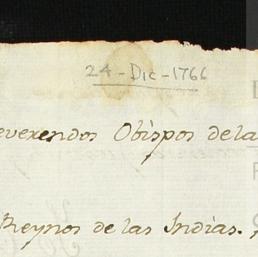 24-Dic-1766
everendos Obispos de la
Reynos de las Indias.